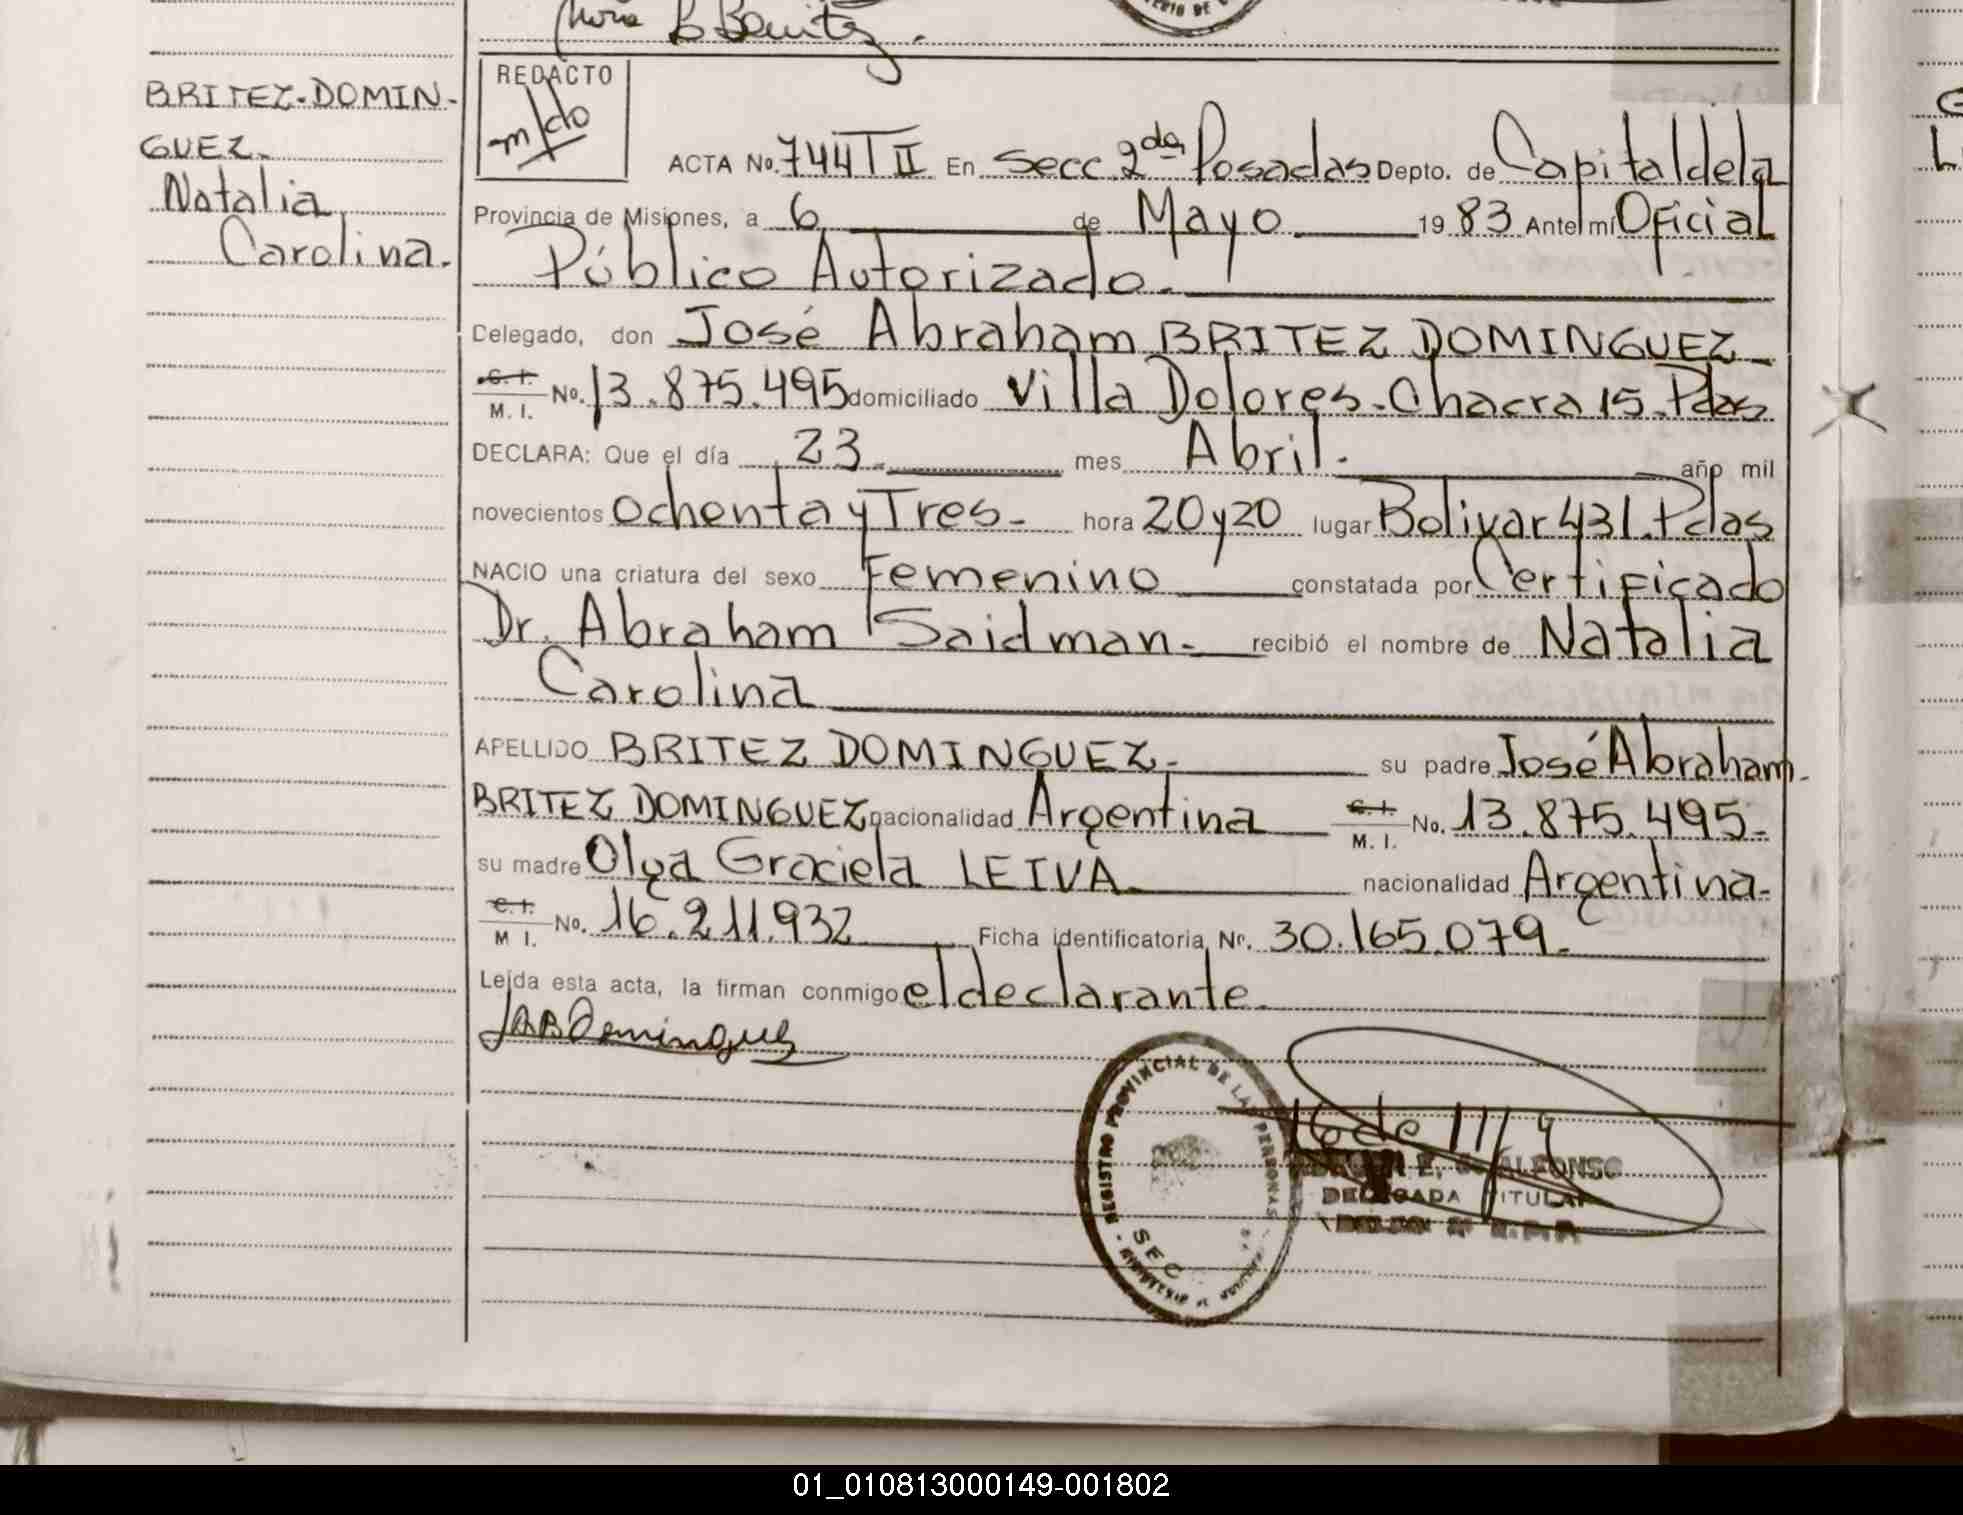 B Benitez.
BRITEZ-DOMIN-
GUEZ.
Natalia
Carolina.
REDACTO
ACTA No. 744 T II En Secc. 2da Posadas Depto. de Capital de la
Provincia de Misiones, a 6 de Mayo 1983 Ante mí Oficial
Público Autorizado.
Delegado, don José Abraham BRITEZ DOMINGUEZ
C. I. / M. I. No. 13.875.495 domiciliado Villa Dolores-Chacra 15. Pdas
DECLARA: Que el día 23 mes Abril. año mil
novecientos ochenta y Tres- hora 20 y 20 lugar Bolivar 431. Pdas
NACIO una criatura del sexo Femenino constatada por Certificado
Dr. Abraham Saidman- recibió el nombre de Natalia
Carolina
APELLIDO BRITEZ DOMINGUEZ- su padre José Abraham-
BRITEZ DOMINGUEZ nacionalidad Argentina C. I. / M. I. No. 13.875.495-
su madre Olga Graciela LEIVA nacionalidad Argentina-
C. I. / M I. No. 16.211.932 Ficha identificatoria Nº. 30.165.079-
Leída esta acta, la firman conmigo el declarante.
JAB Dominguez
REGISTRO PROVINCIAL DE LAS PERSONAS
SEC
ALFONSO
DELEGADA TITULAR
01_010813000149-001802